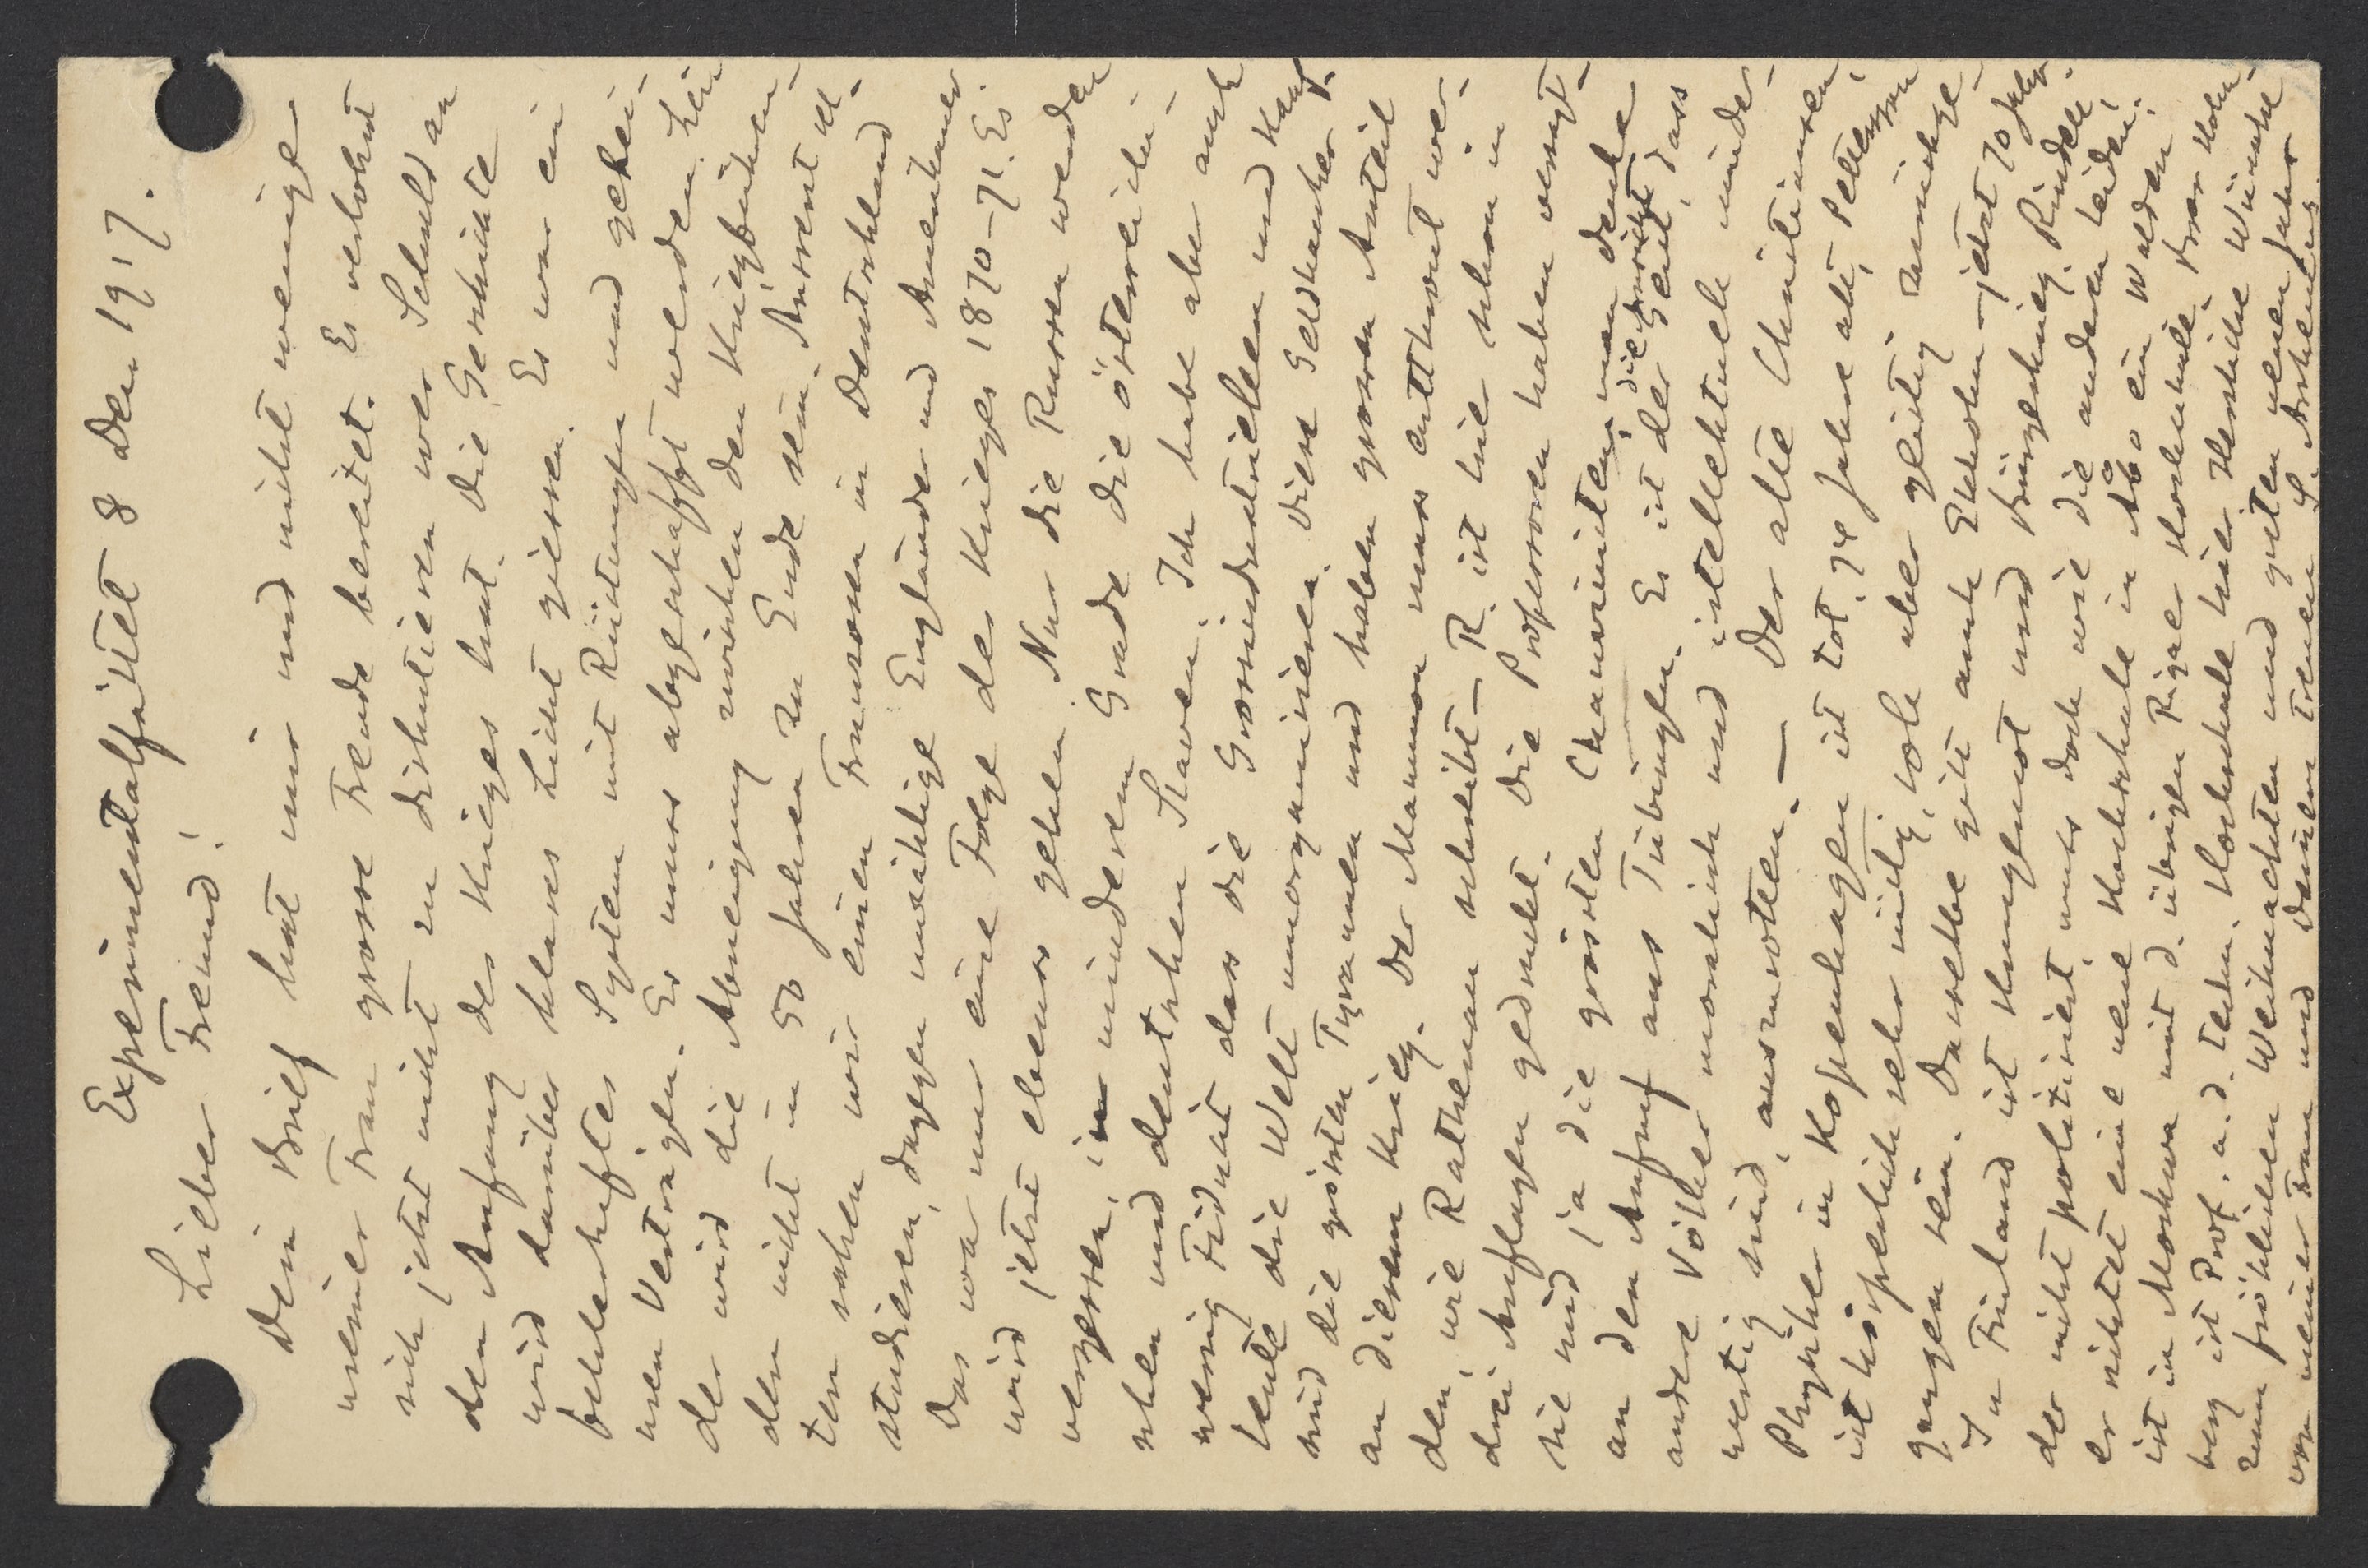 Experimentalfältet 8 Dec. 1917.
Lieber Freund!
Dein Brief hat mir und nicht weniger
meiner Frau grosse Freude bereitet. Es verlohnt
sich jetzt nicht zu diskutieren wer Schuld an
den Anfang des Krieges hat. Die Geschichte
wird darüber klares Licht giessen. Es war ein
fehlerhaftes System mit Rüstungen und gehei-
men Verträgen. Es muss abgeschafft werden. Lei-
der wird die Abneigung zwischen den Kriegführen-
den nicht in 50 Jahren zu Ende sein. Äusserst sel-
ten sahen wir einen Franzosen in Deutschland
studieren, dagegen unzählige Engländer und Amerikaner.
Das war nur eine Folge des Krieges 1870-71. Es
wird jetzt ebenso gehen. Nur die Russen werden
vergessen, in minderem Grade die österreichi-
schen und deutschen Slaven. Ich habe aber auch
wenig Fiduzit dass die Grossindustriellen und Kauf-
leute die Welt umorganisieren. Diese Geldmenschen
sind die grössten Tyrannen und haben grossen Anteil
an diesem Krieg. Der Mammon muss entthront wer-
den, wie Rathenau schreibt – R. ist hier schon in
drei Auflagen gedruckt. Die Professoren haben versagt –
sie sind ja die grössten Chauvinisten, man denke
an den Aufruf aus Tübingen. Es ist der Geist, die Ansicht dass
andere Völker moralisch und intellektuell minder-
wertig sind, auszurotten. — Der alte Christiansen,
Physiker in Kopenhagen ist tot, 74 Jahre alt, Pettersson
ist körperlich sehr rüstig, soll aber geistig zurückge-
gangen sein. Dasselbe gilt auch Ekholm – jetzt 70 Jahre.
In Finland ist Hungersnot und Bürgerkrieg. Rindell,
der nicht politisiert, muss doch wie die anderen leiden;
er richtet eine neue Hochschule in Åbo ein. Walden
ist in Moskva mit d. übrigen Rigaer Hochschule. Bror Holm-
berg ist Prof. a. d. techn. Hochschule hier. Herzliche Wünsche
zum fröhlichen Weihnachten und guten neuen Jahr
von meiner Frau und Deinem treuen S. Arrhenius.